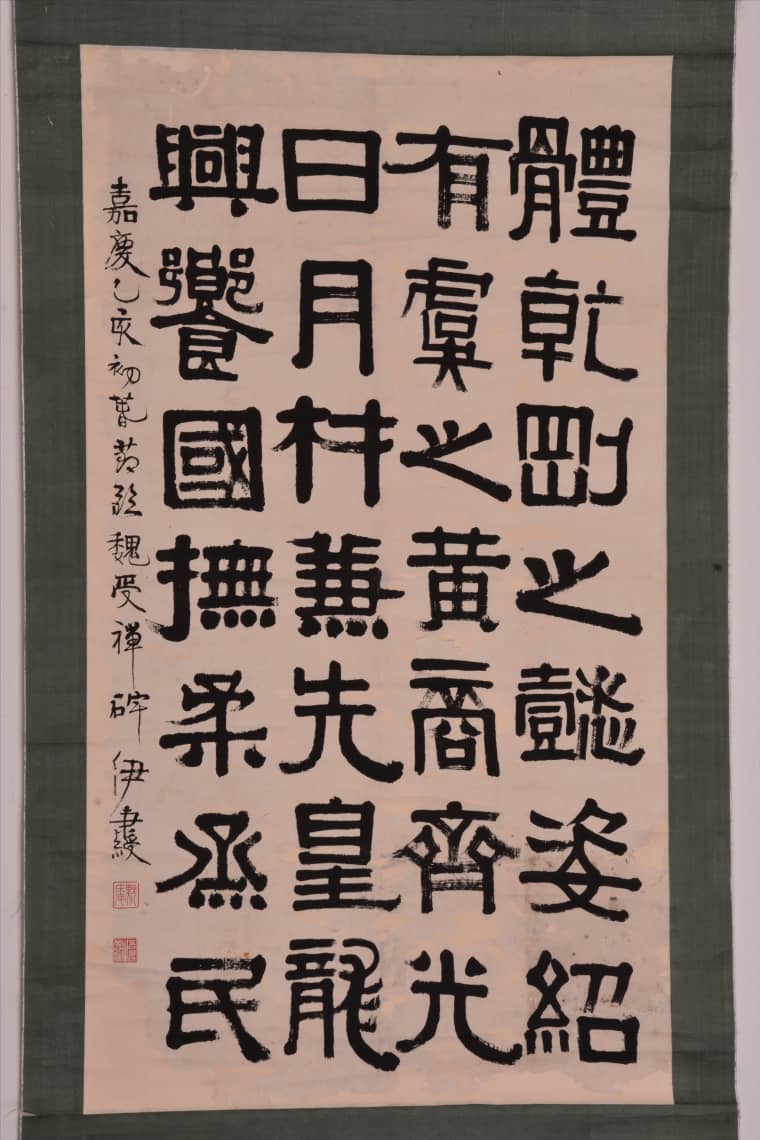 體乾剛之懿姿紹
有虞之黃裔齊光
日月材兼先皇龍
興饗國撫柔烝民
嘉慶乙亥初
魏受禪碑
伊秉綬